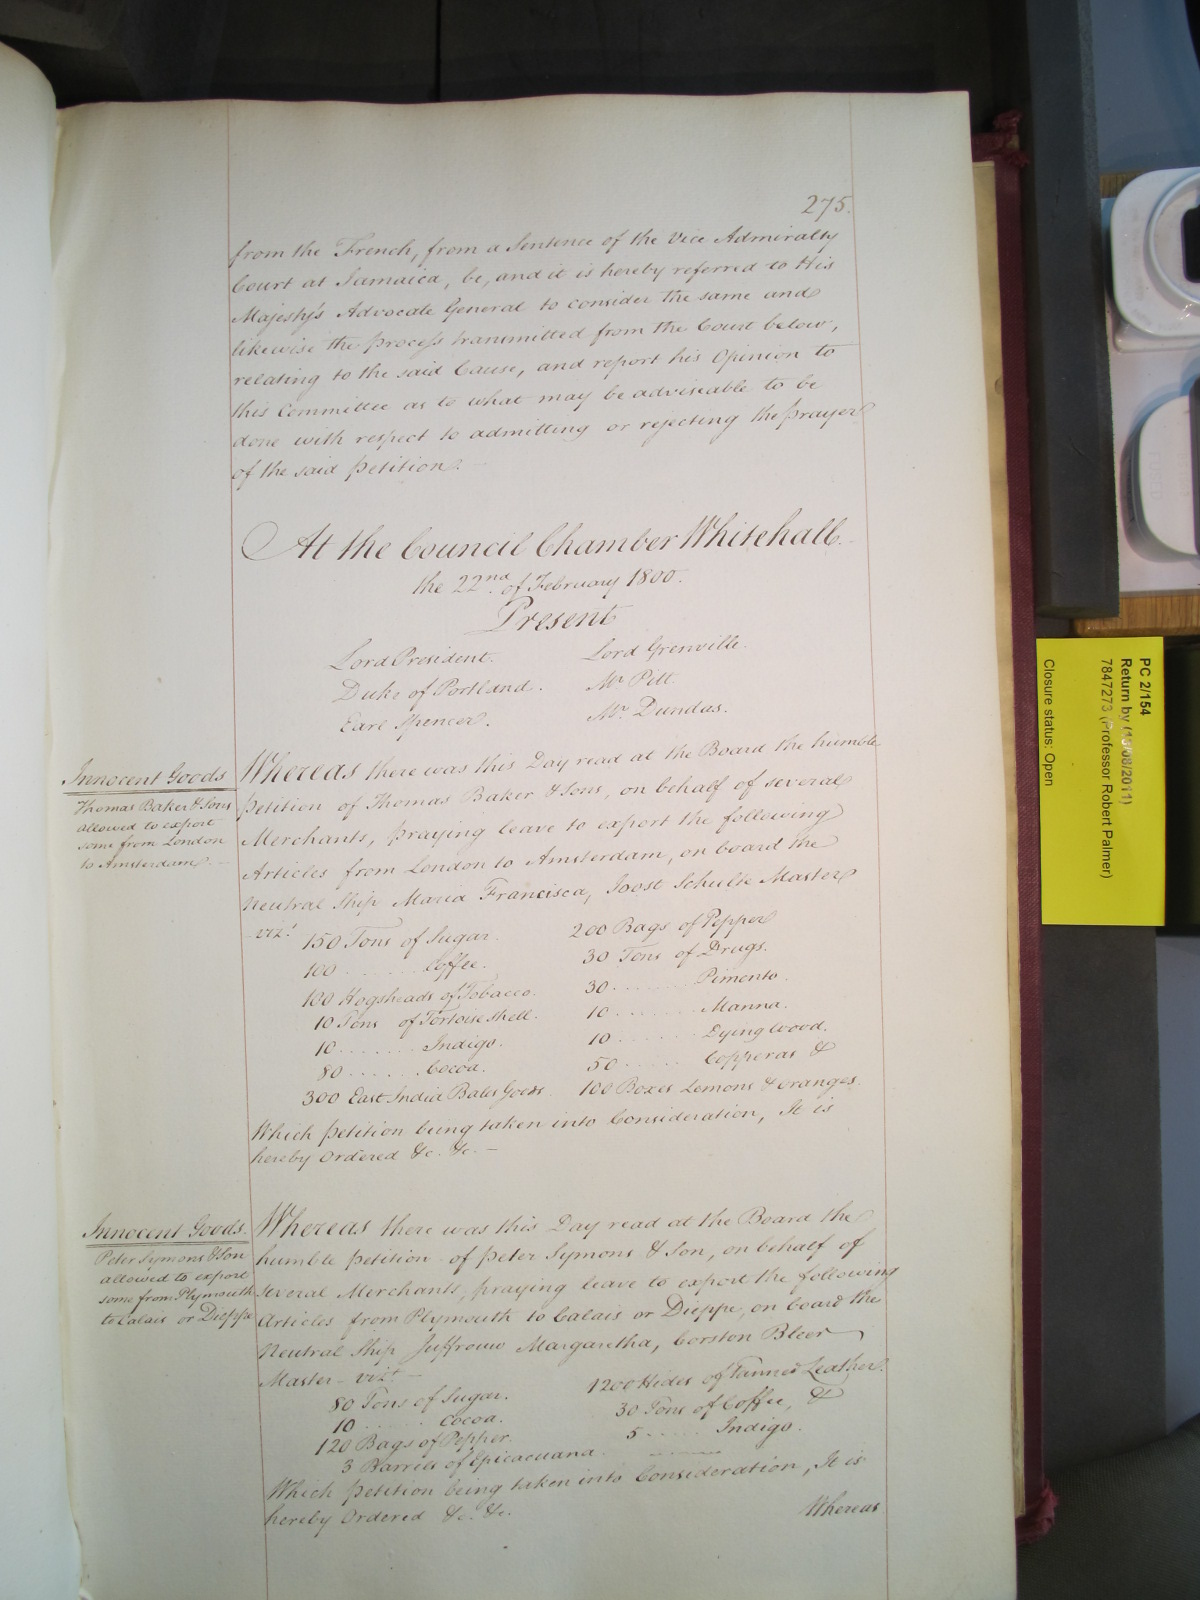 275.
from the French, from a Sentence of the Vice Admiralty
Court at Jamaica, be, and it is hereby referred to His
Majesty's Advocate General to consider the same and
likewise the process transmitted from the Court below,
relating to the said Cause, and report his Opinion to
this Committee as to what may be adviseable to be
done with respect to admitting or rejecting the prayer
of the said petition.
At the Council Chamber Whitehall.
the 22nd of February 1800.
Present
Lord President. Lord Grenville.
Duke of Portland. Mr Pitt.
Earl Spencer. Mr Dundas.
Innocent Goods
Thomas Baker & Sons
allowed to export
some from London
to Amsterdam.
Whereas there was this Day read at the Board the humble
Petition of Thomas Baker & Sons, on behalf of several
Merchants, praying leave to export the following
Articles from London to Amsterdam, on board the
Neutral Ship Maria Francisca, Joost Schulte Master
vizt
150 Tons of Sugar. 200 Bags of Pepper
100 ....... Coffee. 30 Tons of Drugs.
100 Hogsheads of Tobacco. 30 ....... Pimento.
10 Tons of Tortoise Shell. 10 ....... Manna.
10 ....... Indigo. 10 ....... Dying Wood.
80 ....... Cocoa. 50 ....... Copperas &
300 East India Bales Goods 100 Boxes Lemons & Oranges.
Which petition being taken into Consideration, It is
hereby Ordered &c. &c. —
Innocent Goods.
Peter Symons & Son
allowed to export
some from Plymouth
to Calais or Dieppe
Whereas there was this Day read at the Board the
humble petition of Peter Symons & Son, on behalf of
several Merchants, praying leave to export the following
Articles from Plymouth to Calais or Dieppe, on board the
Neutral Ship Juffrouw Margaretha, Corston Bleer
Master - vizt —
80 Tons of Sugar. 1200 Hides of Tanned Leather.
10 ....... Cocoa. 30 Tons of Coffee, &
120 Bags of Pepper. 5 ..... Indigo.
3 Barrels of Epicacuana.
Which petition being taken into Consideration, It is
hereby Ordered &c. &c.
Whereas
PC 2/154
Return by (13/08/2011)
7847273 (Professor Robert Palmer)
Closure status: Open